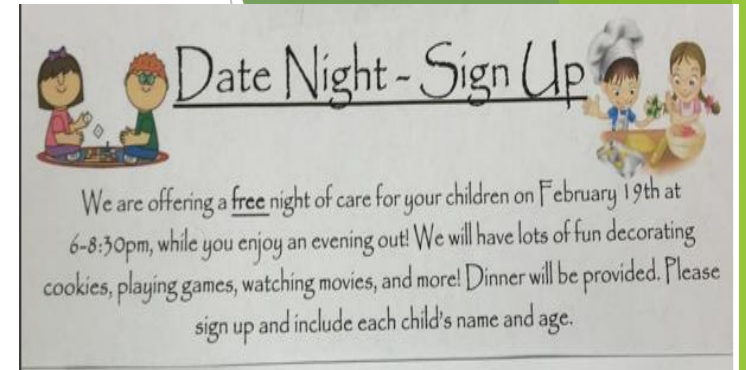 Date Night - Sign Up
We are offering a free night of care for your children on February 19th at
6-8:30pm, while you enjoy an evening out! We will have lots of fun decorating
cookies, playing games, watching movies, and more! Dinner will be provided. Please
sign up and include each child's name and age.